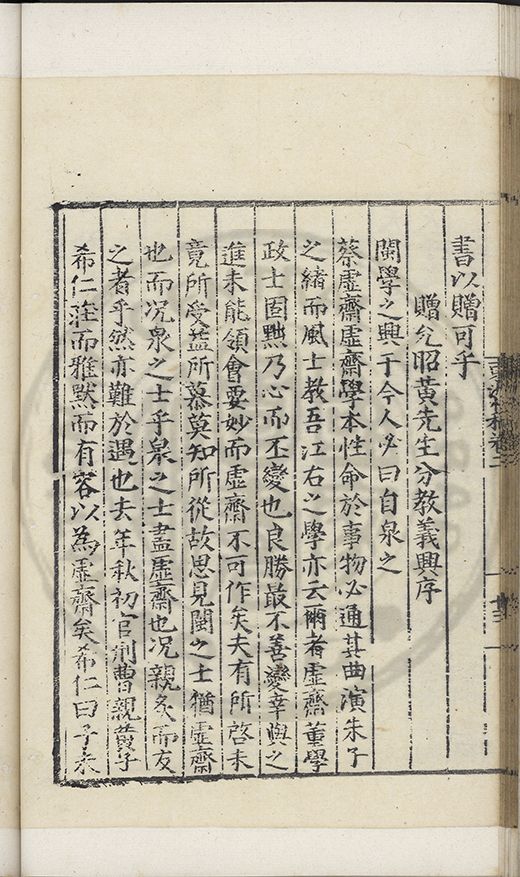 書以贈可乎
贈允昭黃先生分教義興序
閩學之興于今人必曰自泉之
蔡虛齋虛齋學本性命於事物必通其曲演朱子
之緒而風士教吾江右之學亦云爾者虛齋董學
政士固㸃乃心而丕變也良勝最不善變幸與之
進未能領會要妙而虛齋不可作矣夫有所啓未
竟所受益所慕莫知所從故思見閩之士猶虛齋
也而况泉之士乎泉之士盡虛齋也况親炙而友
之者乎然亦難於遇也去年秋初官刑曹親黃子
希仁莊而雅默而有容以為虛齋矣希仁曰予未